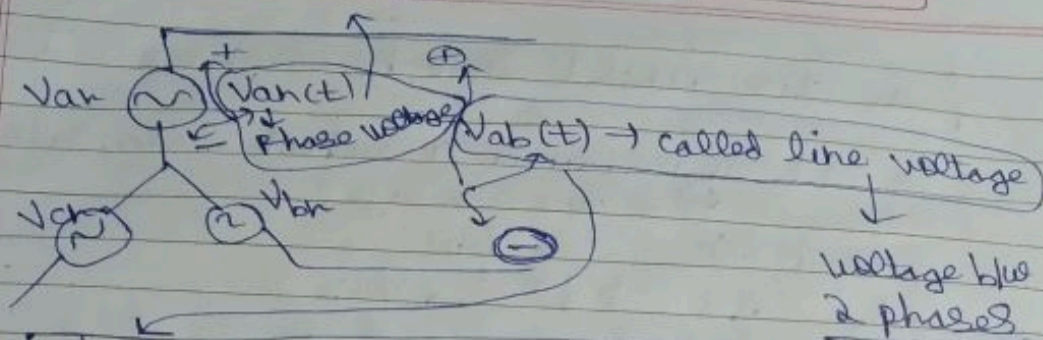 +
⊕
Van
Van(t)
Phase voltage
Vab(t) → called line voltage
Vcn
Vbn
-
⊖
voltage b/w
2 phases